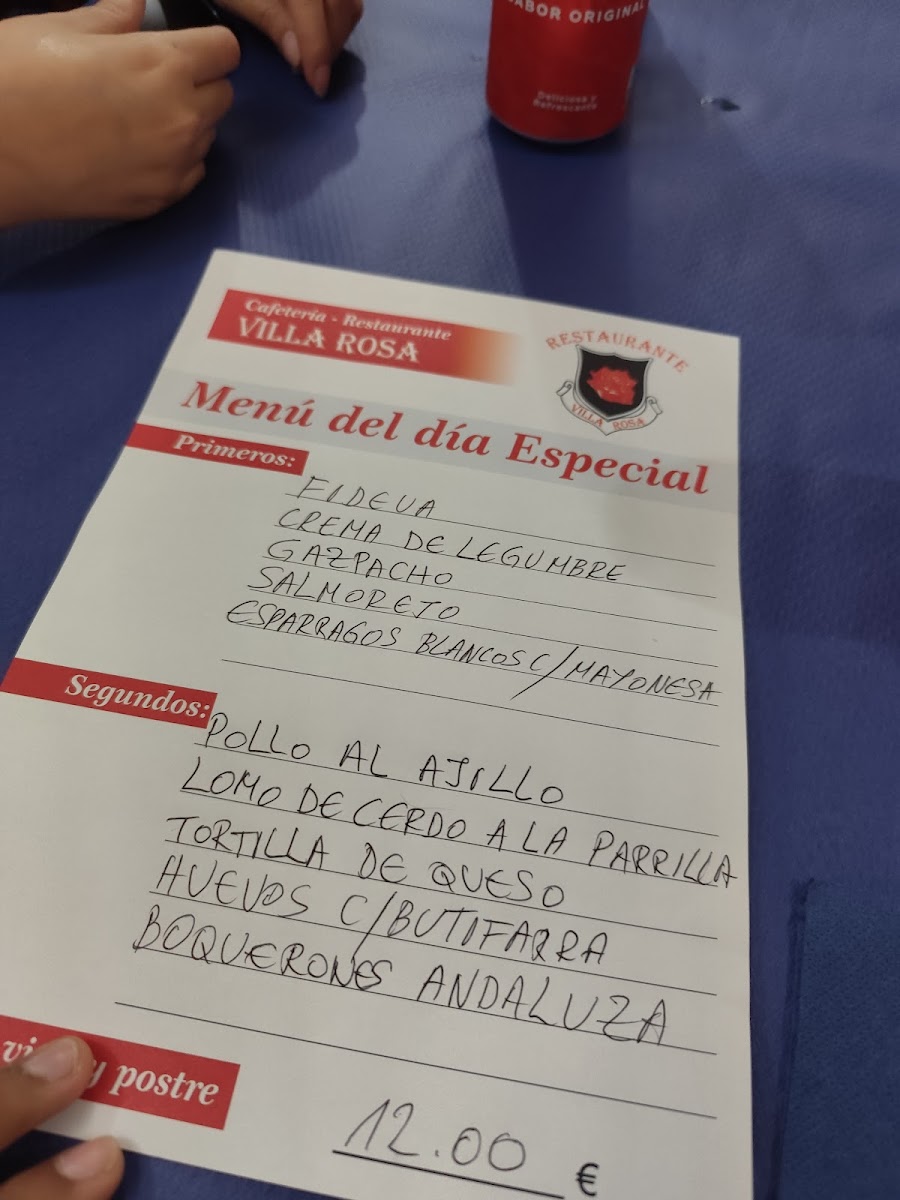 SABOR ORIGINAL
Deliciosa y
Refrescante
Cafetería - Restaurante
VILLA ROSA
RESTAURANTE
VILLA ROSA
Menú del día Especial
Primeros:
FIDEUA
CREMA DE LEGUMBRE
GAZPACHO
SALMOREJO
ESPARRAGOS BLANCOS C/MAYONESA
Segundos:
POLLO AL AJILLO
LOMO DE CERDO A LA PARRILLA
TORTILLA DE QUESO
HUEVOS C/BUTIFARRA
BOQUERONES ANDALUZA
y postre
12.00 €